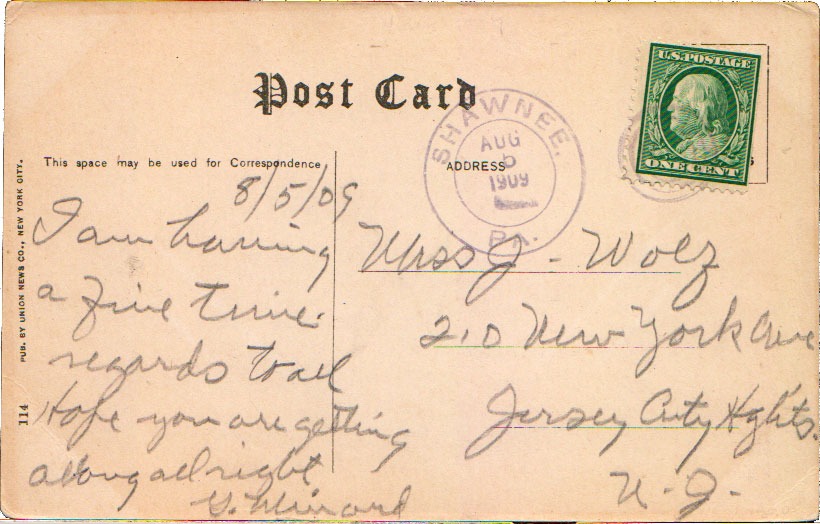 Post Card
This space may be used for Correspondence
ADDRESS
SHAWNEE,
AUG
5
1909
PA.
U.S. POSTAGE
ONE CENT
PUB. BY UNION NEWS CO., NEW YORK CITY.
114
8/5/09
I am having
a fine time.
regards to all
Hope you are getting
along allright
Miss J - Wolz
210 New York Ave
Jersey City Hghts.
N - J -